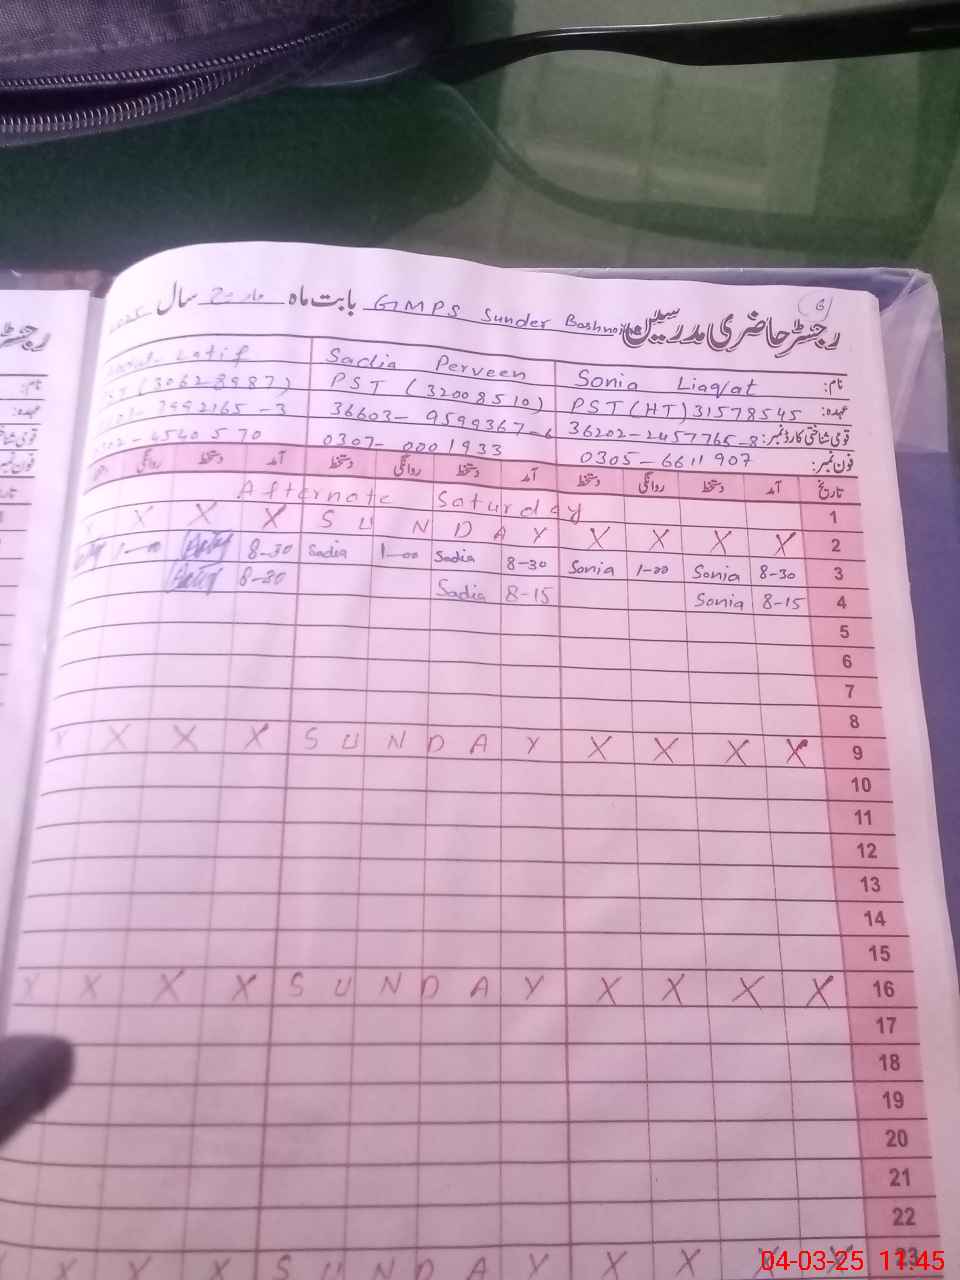 6
رجسٹر حاضری مدرسین GMPS Sunder Bashno بابت ماہ مارچ سال
نام: Sonia Liaqat Sadia Perveen Latif
عہدہ: PST (HT) 31578545 PST (32008510) (30628987)
قومی شناختی کارڈ نمبر: 36202-2457765-8 36603-9599367-6 3992165-3
فون نمبر: 0305-6611907 0307-0001933 4540570
تاریخ آمد دستخط روانگی دستخط آمد دستخط روانگی دستخط آمد دستخط روانگی
1 Alternate Saturday
2 X X X X SUNDAY X X X
3 8-30 Sonia 1-00 Sonia 8-30 Sadia 1-00 Sadia 8-30 1-00
4 8-15 Sonia 8-15 Sadia 8-30
5
6
7
8
9 X X X X SUNDAY X X X X
10
11
12
13
14
15
16 X X X X SUNDAY X X X X
17
18
19
20
21
22
23 X X X X SUNDAY X X X
04-03-25 11:45